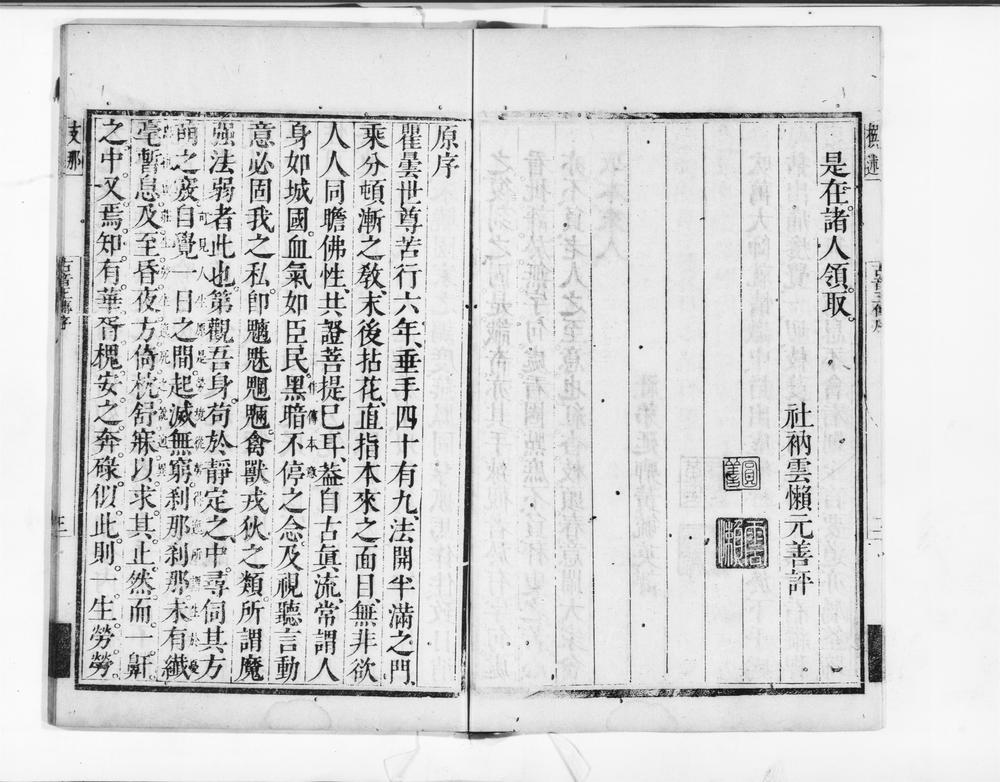 是在。諸人領取。
社衲雲懶元善評
原序
瞿曇世尊苦行六年、垂手四十有九、法開半滿之門、
乘分頓漸之教、末後拈花、直指本來之面目、無非欲
人人同瞻佛性、共證菩提已耳、葢自古眞流、常謂人
身如城國、血氣如臣民、黑暗不停之念、及視聽言動
意必固我之私、卽魑魅魍魎、禽獸戎狄之類、所謂魔
强法弱者此也、第觀吾身、苟於靜定之中、尋伺其方
萌之妄、自覺一日之間、起滅無窮、刹那刹那、未有纖
毫暫息、及至昏夜、方倚枕舒寐、以求其止、然而一鼾
之中、又焉知有華胥槐安之奔碌、似此則一生勞勞、
支那
撰述
三
二